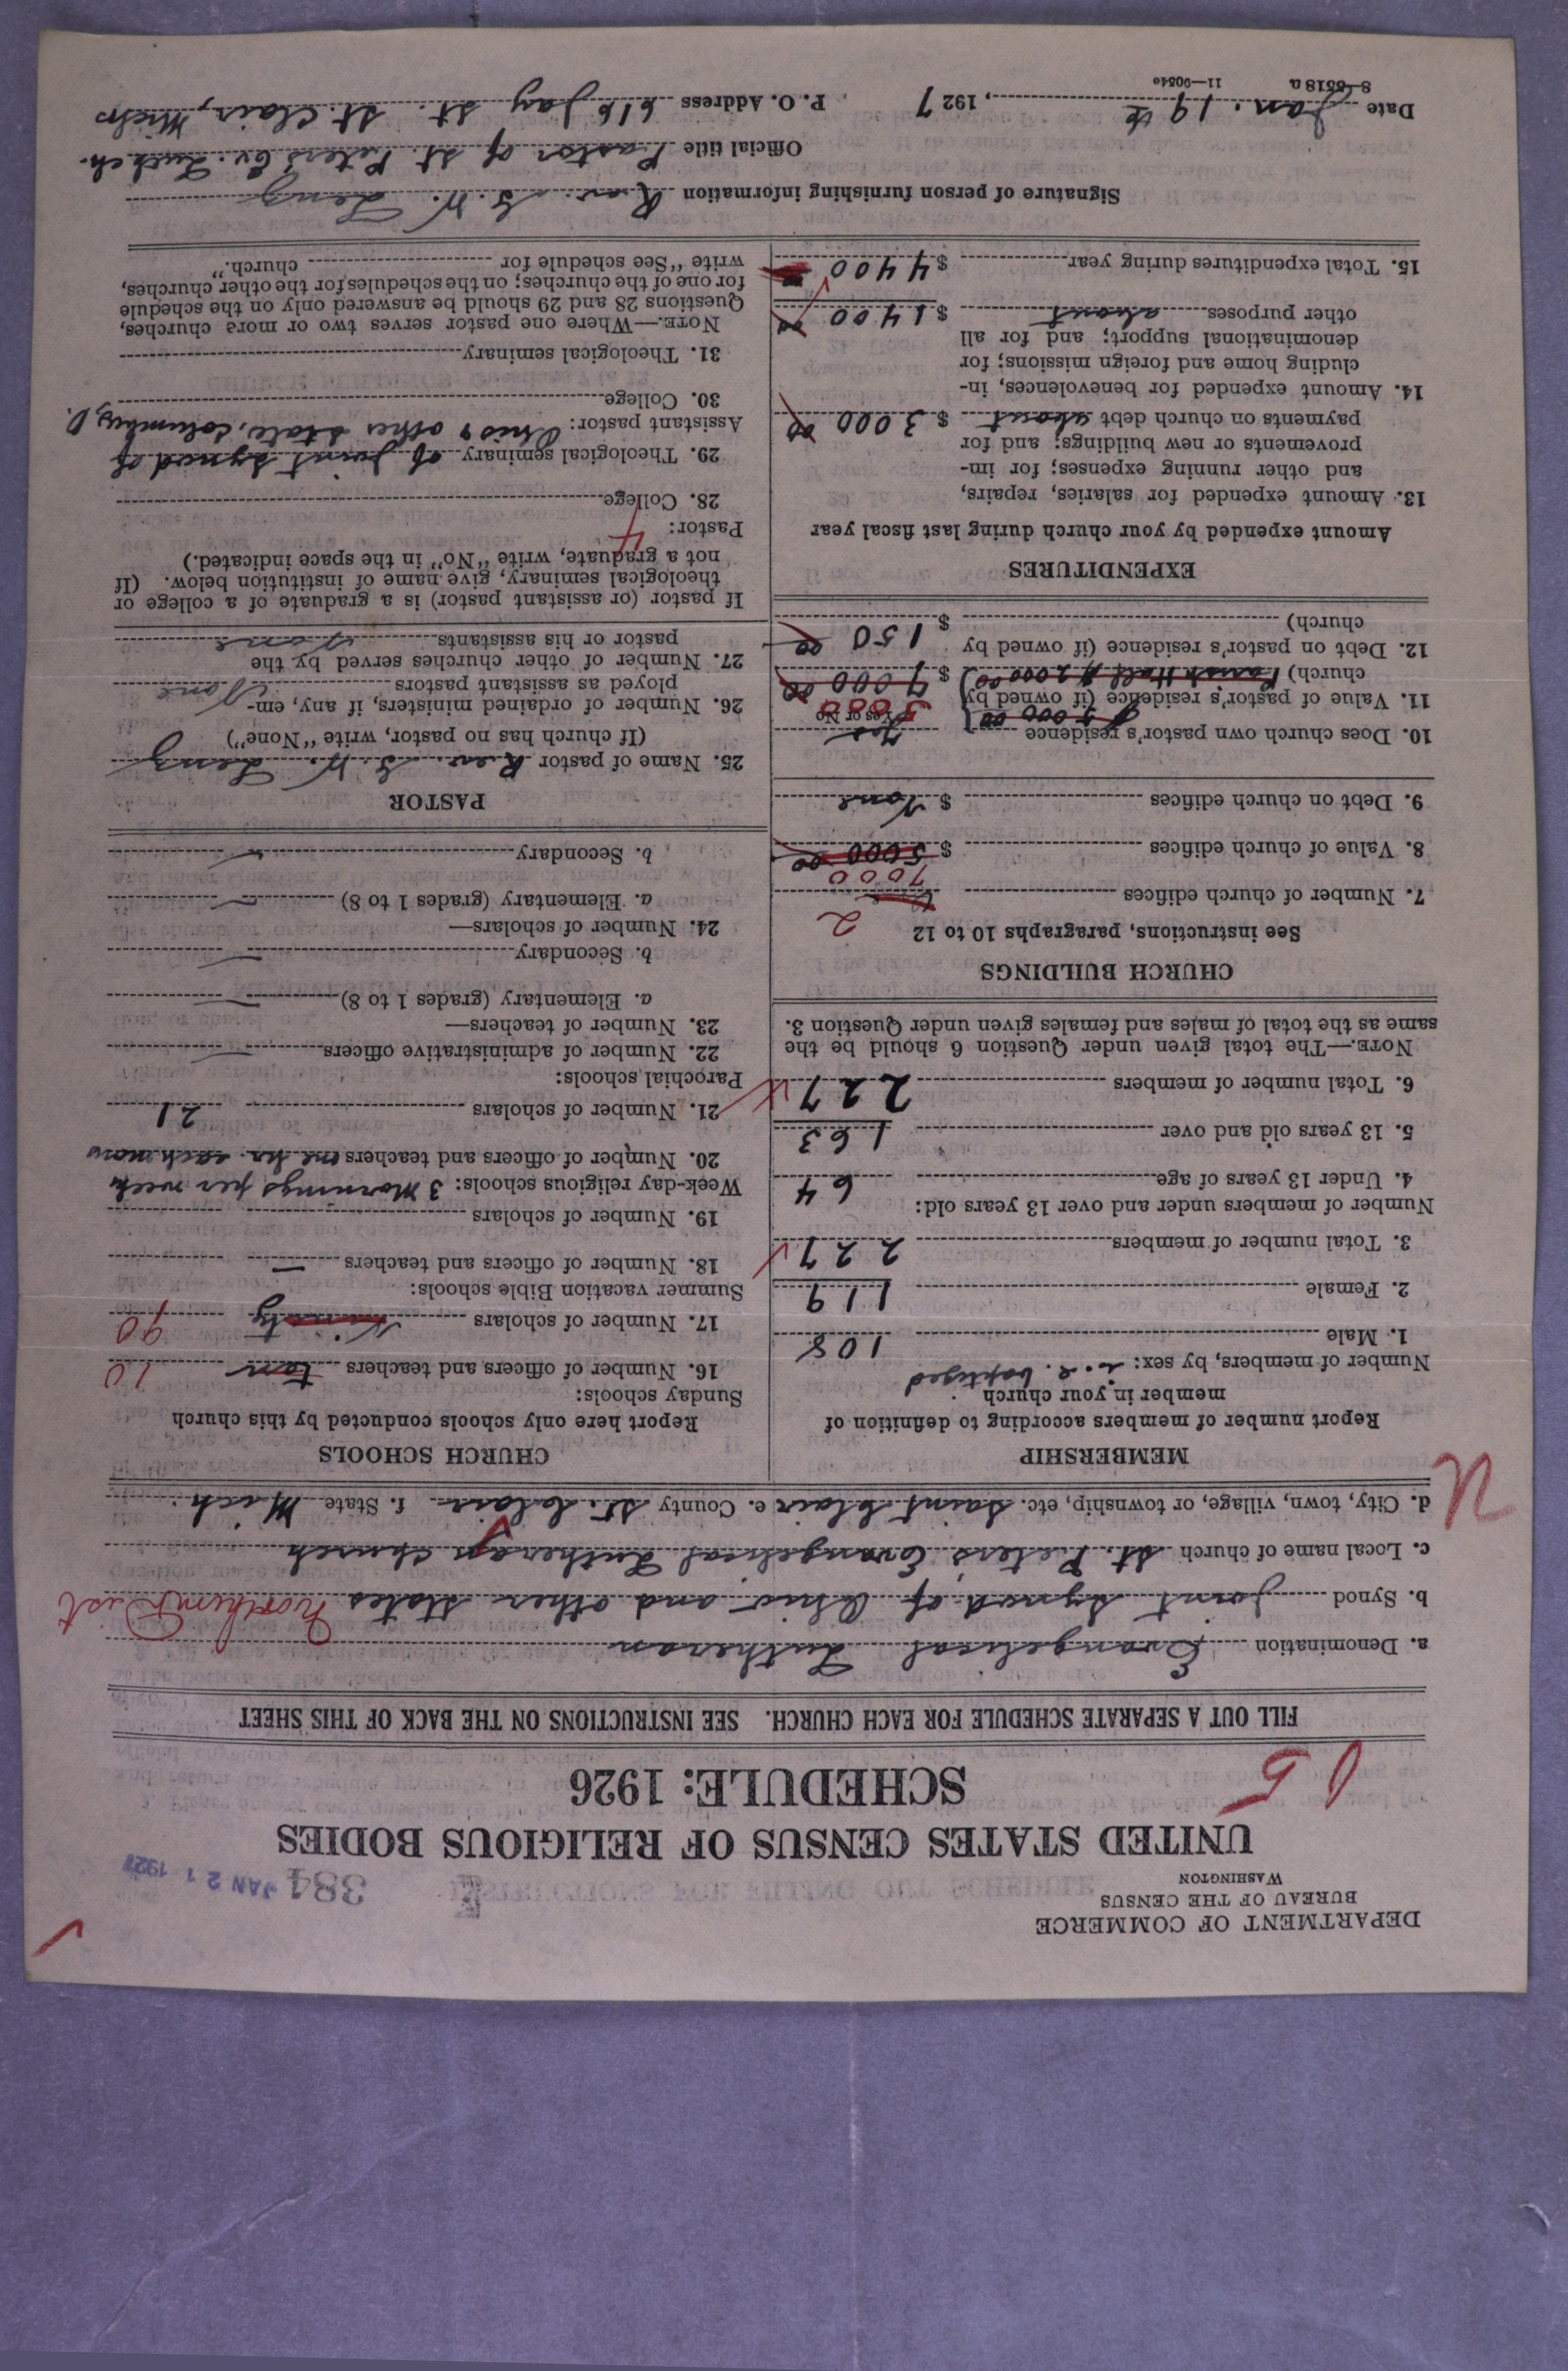 DEPARTMENT OF COMMERCE
BUREAU OF THE CENSUS
WASHINGTON
384 JAN 21 1927
UNITED STATES CENSUS OF RELIGIOUS BODIES
SCHEDULE: 1926
FILL OUT A SEPARATE SCHEDULE FOR EACH CHURCH. SEE INSTRUCTIONS ON THE BACK OF THIS SHEET
a. Denomination Evangelical Lutheran
b. Synod Joint Synod of Ohio and other States Northern Dist
c. Local name of church St. Peters Evangelical Lutheran Church
d. City, town, village, or township, etc. Saint Clair e. County St. Clair f. State Mich.
MEMBERSHIP
Report number of members according to definition of
member in your church
Number of members, by sex: i. e. baptized
1. Male 108
2. Female 119
3. Total number of members 227
Number of members under and over 13 years old:
4. Under 13 years of age 64
5. 13 years old and over 163
6. Total number of members 227
NOTE.—The total given under Question 6 should be the
same as the total of males and females given under Question 3.
CHURCH BUILDINGS
See instructions, paragraphs 10 to 12
2
7. Number of church edifices
7000
8. Value of church edifices $ 5000 00
9. Debt on church edifices $ None
10. Does church own pastor's residence Yes
Yes or No
$ 5000 00
5000
11. Value of pastor's residence (if owned by
church) Parish Hall $ 2000 00 $ 7000 00
12. Debt on pastor's residence (if owned by
church) $ 150 00
EXPENDITURES
Amount expended by your church during last fiscal year
13. Amount expended for salaries, repairs,
and other running expenses; for im-
provements or new buildings; and for
payments on church debt about $ 3000 00
14. Amount expended for benevolences, in-
cluding home and foreign missions; for
denominational support; and for all
other purposes about $ 1400 00
15. Total expenditures during year $ 4400
CHURCH SCHOOLS
Report here only schools conducted by this church
Sunday schools:
16. Number of officers and teachers ten 10
17. Number of scholars Ninety 90
Summer vacation Bible schools:
18. Number of officers and teachers —
19. Number of scholars
Week-day religious schools: 3 Mornings per week
20. Number of officers and teachers one hr. each morn
21. Number of scholars 21
Parochial schools:
22. Number of administrative officers —
23. Number of teachers—
a. Elementary (grades 1 to 8) —
b. Secondary —
24. Number of scholars—
a. Elementary (grades 1 to 8) —
b. Secondary —
PASTOR
25. Name of pastor Rev. G. W. Lenz
(If church has no pastor, write "None")
26. Number of ordained ministers, if any, em-
ployed as assistant pastors None
27. Number of other churches served by the
pastor or his assistants None
If pastor (or assistant pastor) is a graduate of a college or
theological seminary, give name of institution below. (If
not a graduate, write "No" in the space indicated.)
Pastor: 4
28. College
29. Theological seminary of Joint Synod of
Assistant pastor: Ohio & other State, Columbus, O.
30. College
31. Theological seminary
NOTE.—Where one pastor serves two or more churches,
Questions 28 and 29 should be answered only on the schedule
for one of the churches; on the schedules for the other churches,
write "See schedule for church."
Signature of person furnishing information Rev. G. W. Lenz
Official title Pastor of St. Peters Ev. Luth ch.
Date Jan. 19th, 1927 P. O. Address 616 Jay St. St. Clair, Mich
8—5518a 11—9054c